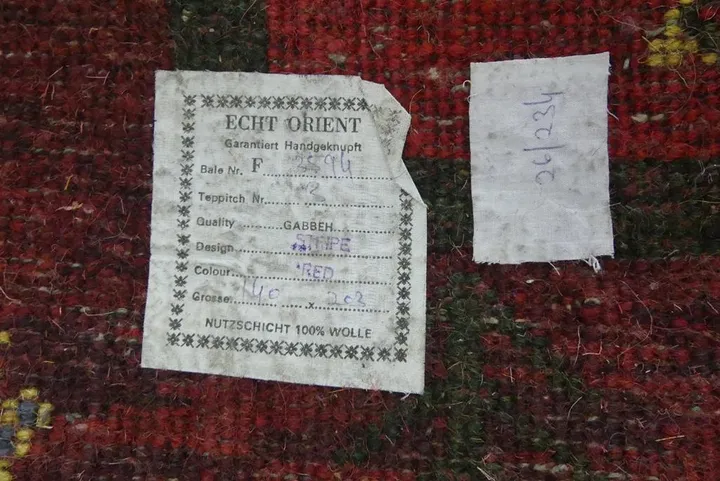 ECHT ORIENT
Garantiert Handgeknupft
Bale Nr. F 3594
Teppitch Nr. 2
Quality GABBEH
Design STRIPE
Colour RED
Grosse 140 x 203
NUTZSCHICHT 100% WOLLE
26/234